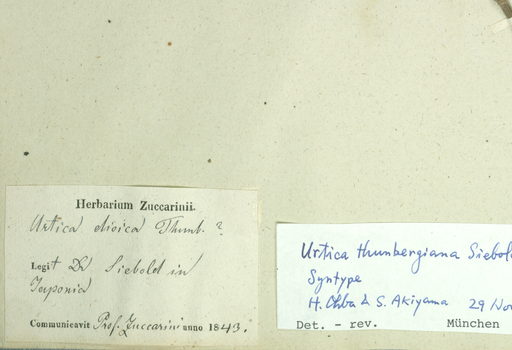 Herbarium Zuccarinii.
Urtica dioica Thunb. ?
Legit Dr Siebold in
Japonia
Communicavit Prof. Zuccarini anno 1843.
Urtica thunbergiana Siebold
Syntype
H. Ohba & S. Akiyama 29 Nov
Det. - rev. München